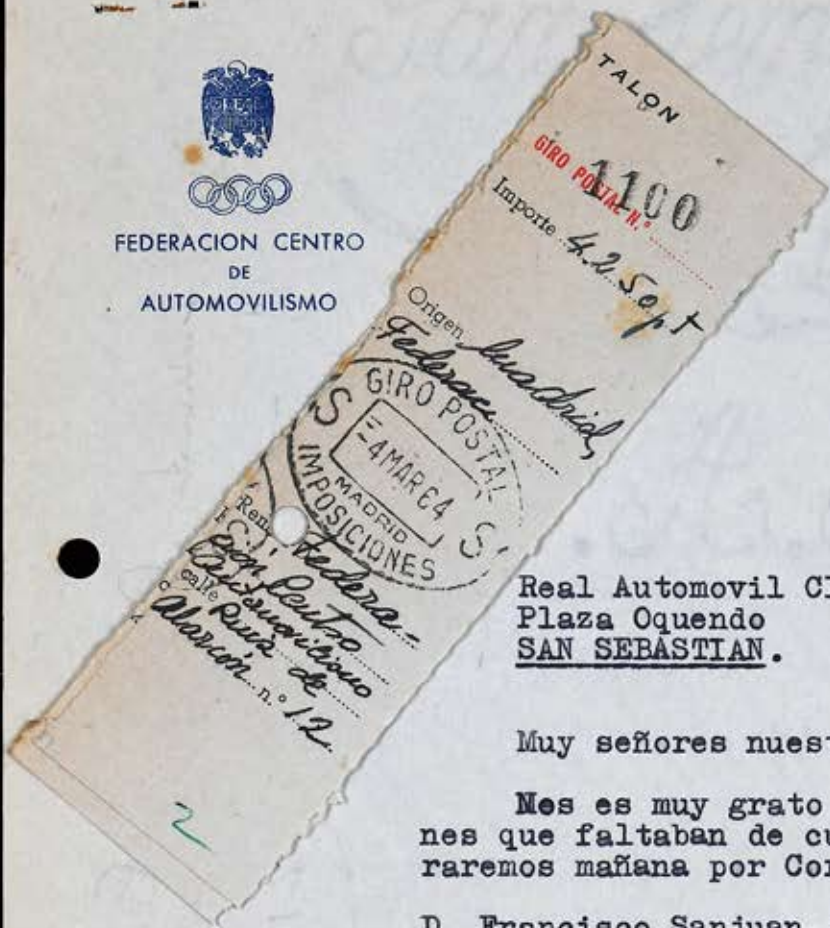 FEDERACION CENTRO
DE
AUTOMOVILISMO
TALON
GIRO POSTAL N.º 1100
Importe 425 opt
Origen Madrid,
Federaci
GIRO POSTAL
S S
4 MAR 64
MADRID
IMPOSICIONES
Federa-
ción Centro
Automovilismo
calle Ruiz de
Alarcón n.º 12
2
Real Automovil Cl
Plaza Oquendo
SAN SEBASTIAN.
Muy señores nuest
Nos es muy grato
nes que faltaban de cu
raremos mañana por Cor
D. Francisco Sanjuan